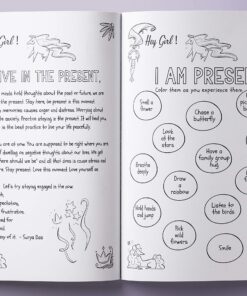 Hey Girl!
IVE IN THE PRESENT,
minds hold thoughts about the past or future we are
the present. Stay here, be present in this moment.
memories causes anger and distress. Worrying about
anxiety. Practice staying in the present. It will lead you
is the best practice to live your life peacefully.
you are at now. You are supposed to be right where you are.
dwelling on negative thoughts about our lives. We get
there should we be" and all that does is cause stress and
are. They present. Love this moment. Love yourself as
Let's try staying engaged in the now.
frustration.
of it. - Surya Das
Hey Girl!
I AM PRESEN
Color them as you experience them
Smell a
flower
Chase a
butterfly
Look
at the
stars
Have a
family group
hug
Breathe
deeply
Draw
a
rainbow
Smile
Hold hands
and jump
Listen to
the birds
Pick
wild
flowers